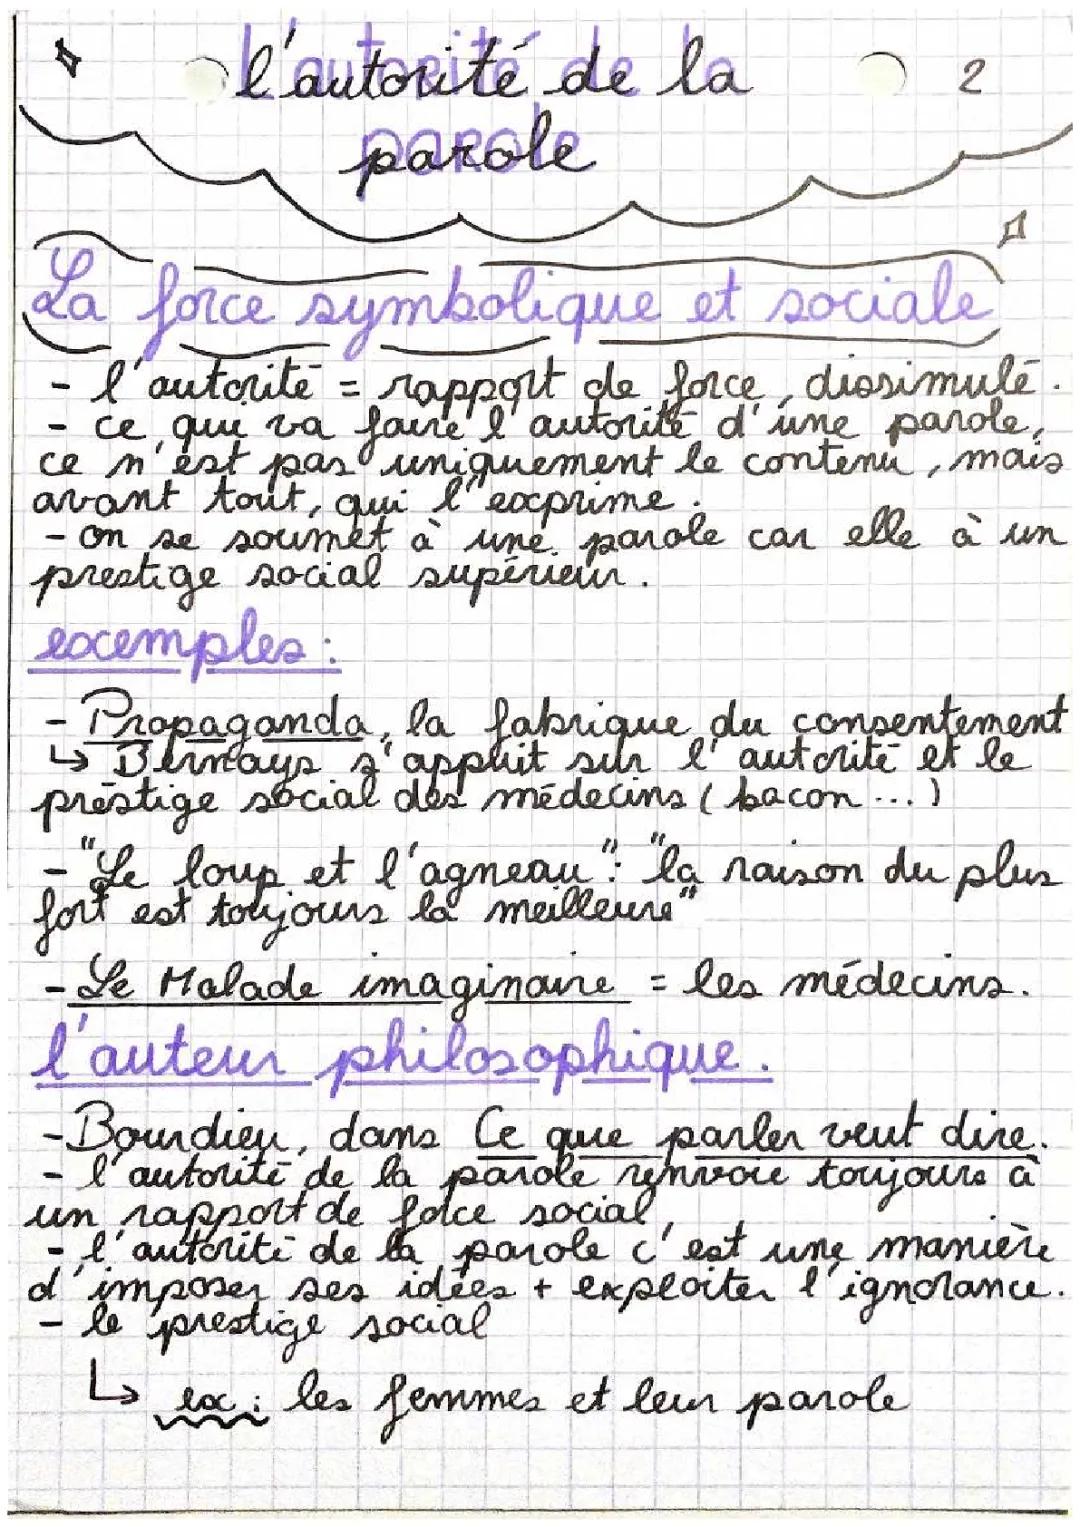 l'autorité de la
2
parole
La force symbolique et sociale
- l'autorité = rapport de force, dissimulé.
- ce qui va faire l'autorité d'une parole,
ce n'est pas uniquement le contenu, mais
avant tout, qui l'exprime.
- on se soumet à une parole car elle à un
prestige social supérieur.
exemples :
- Propaganda, la fabrique du consentement
↳ Bernays s'appuit sur l'autorité et le
prestige social des médecins (bacon ...)
- "Le loup et l'agneau" : "la raison du plus
fort est toujours la meilleure"
- Le Malade imaginaire = les médecins.
l'auteur philosophique.
- Bourdieu, dans Ce que parler veut dire.
- l'autorité de la parole renvoie toujours à
un rapport de force social,
- l'autorité de la parole c'est une manière
d'imposer ses idées + exploiter l'ignorance.
- le prestige social
↳ ex : les femmes et leur parole